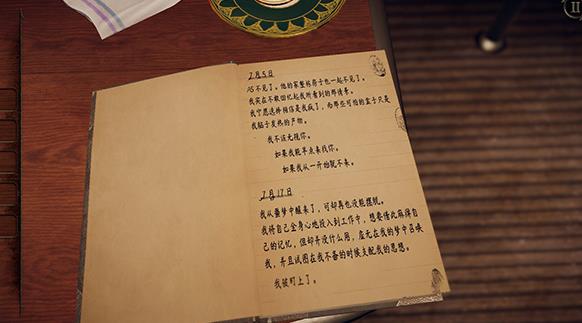 7月5日
巧不见了。他的家整栋房子也一起不见了。
我实在不敢回忆起我所看到的那情景。
我宁愿选择相信是我疯了,而那些可怕的盒子只是
我脑子发热的产物。
我不该无视你。
如果我能早点来找你。
如果我从一开始就不来。
7月17日
我从噩梦中醒来了,可却再也没能摆脱。
我将自己全身心地投入到工作中,想要借此麻痹自
己的记忆,但却并没什么用,虚无在我的梦中召唤
我,并且试图在我不备的时候支配我的思想。
我被盯上了。
II